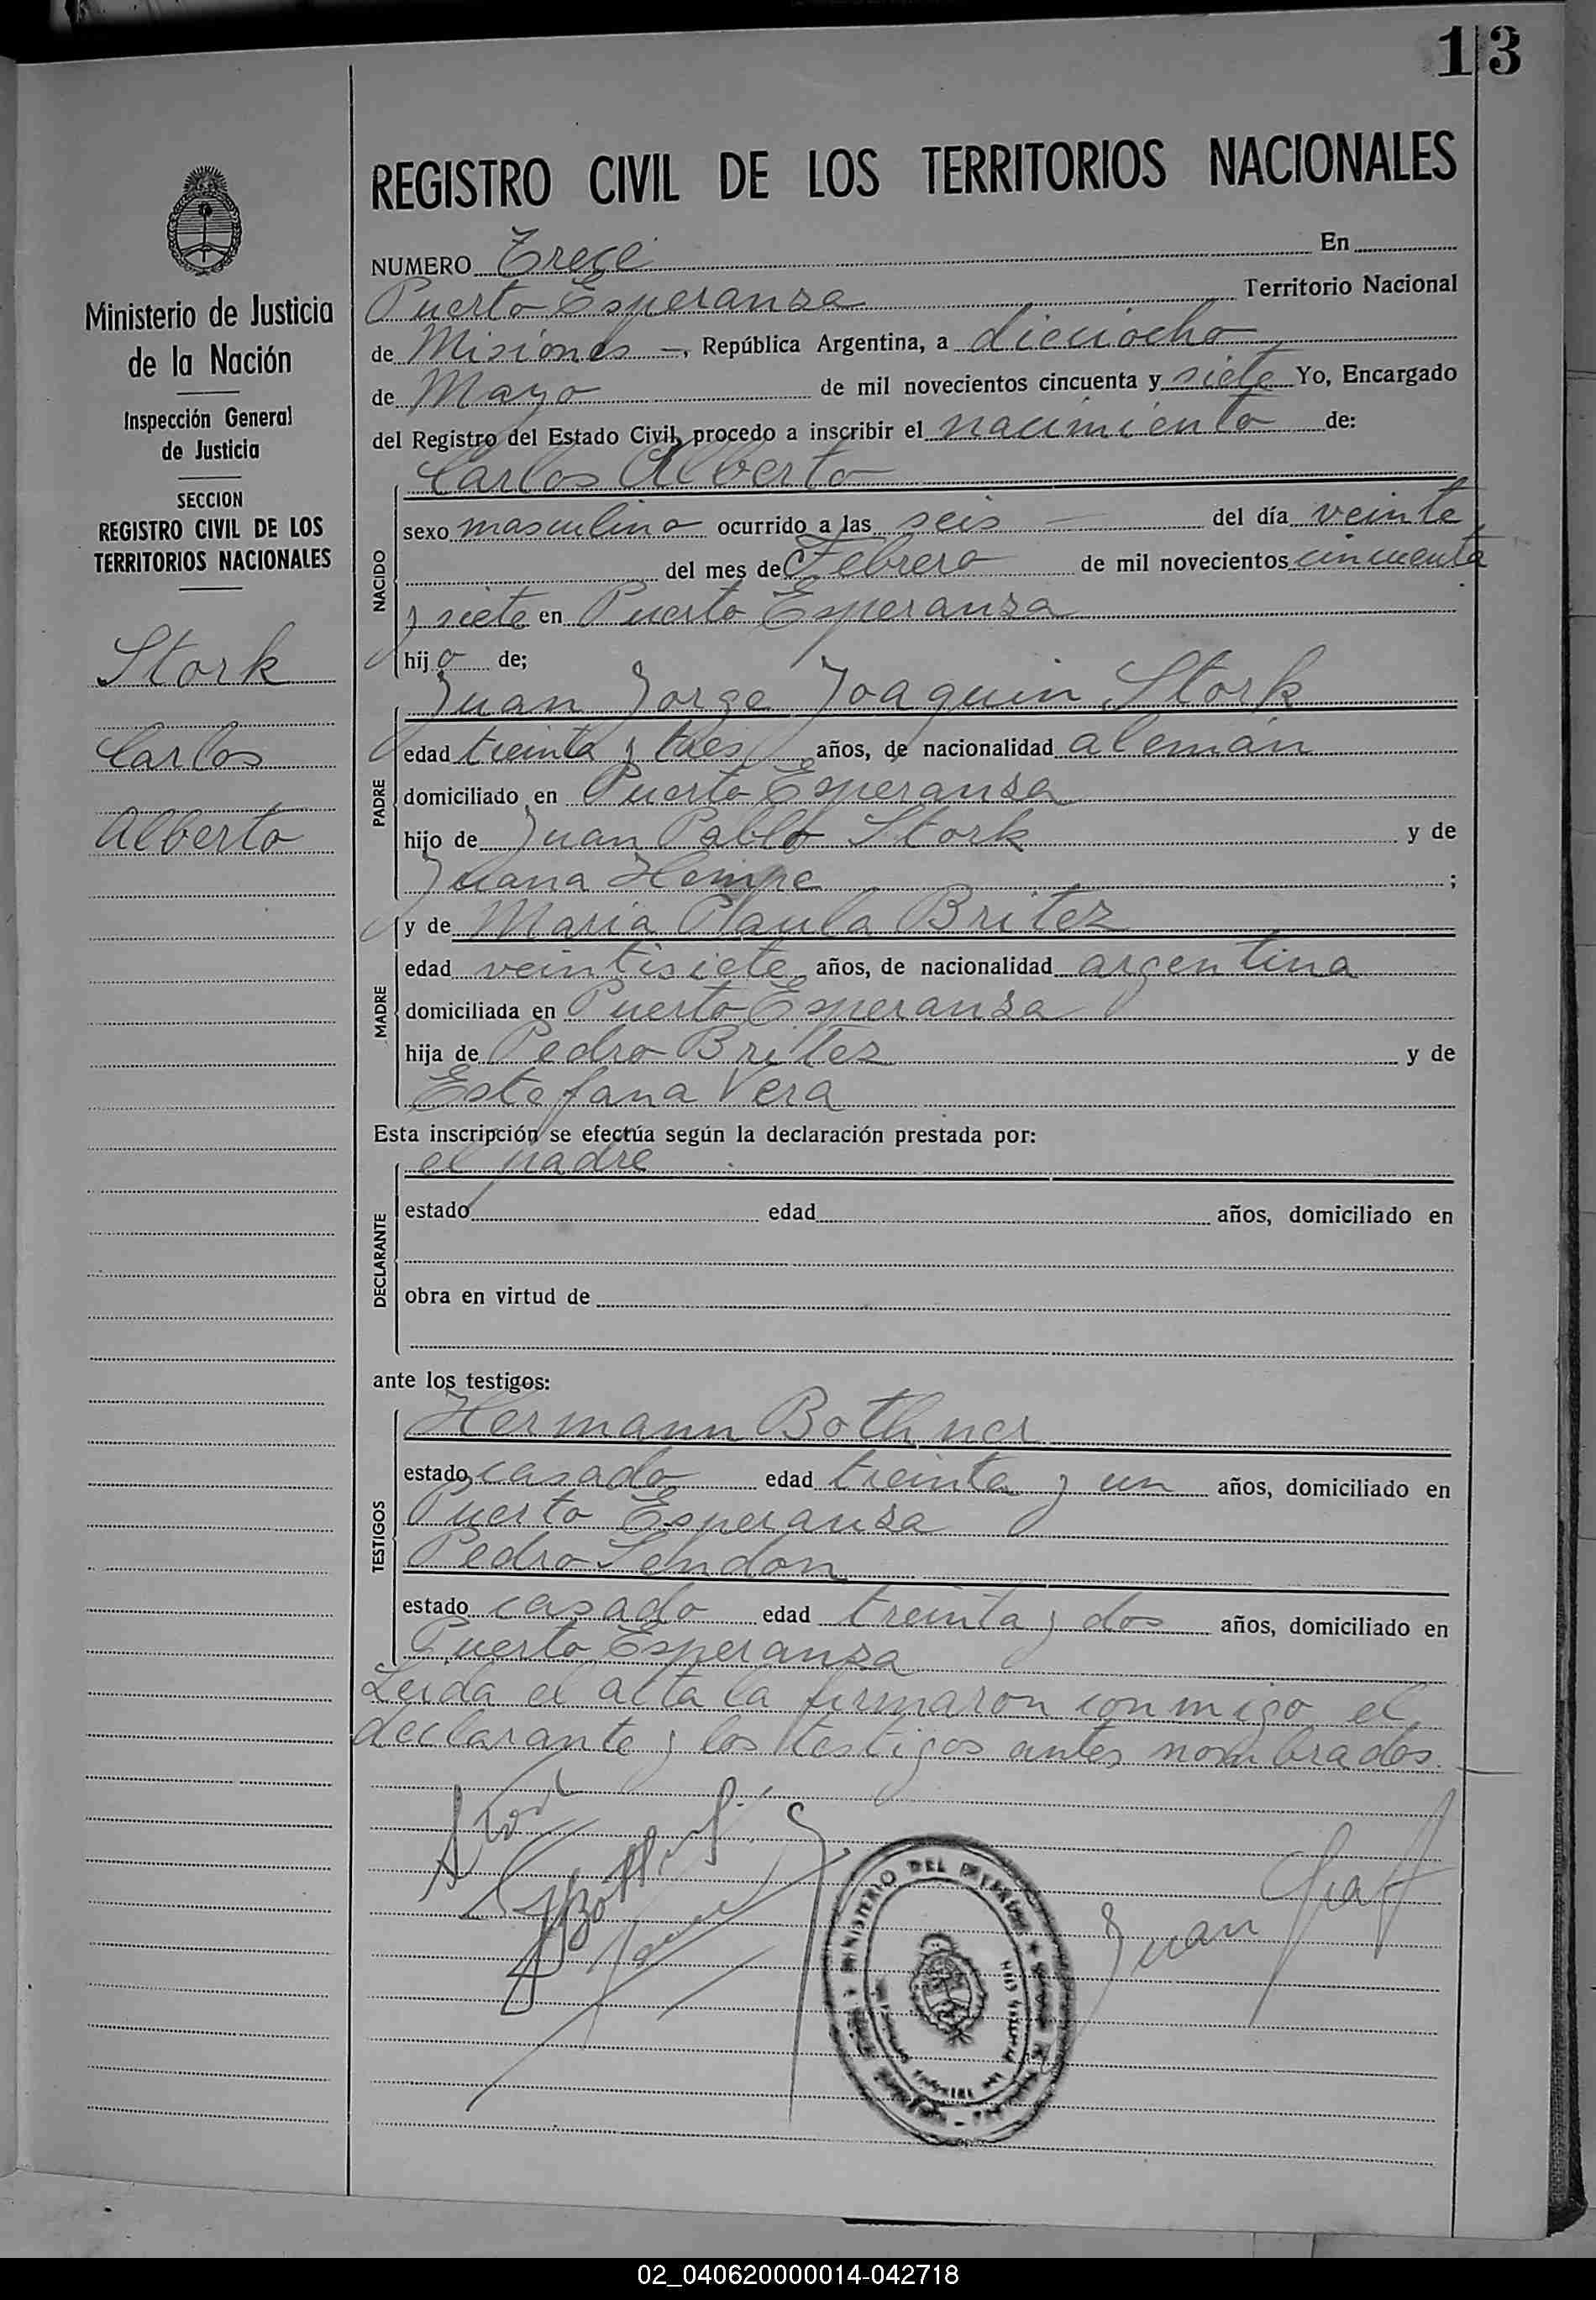 13
REGISTRO CIVIL DE LOS TERRITORIOS NACIONALES
Ministerio de Justicia
de la Nación
Inspección General
de Justicia
SECCION
REGISTRO CIVIL DE LOS
TERRITORIOS NACIONALES
Stork
Carlos
Alberto
NUMERO Trece En
Puerto Esperanza Territorio Nacional
de Misiones -, República Argentina, a dieciocho
de Mayo de mil novecientos cincuenta y siete Yo, Encargado
del Registro del Estado Civil, procedo a inscribir el nacimiento de:
Carlos Alberto
NACIDO
sexo masculino ocurrido a las seis — del día veinte
del mes de Febrero de mil novecientos cincuenta
y siete en Puerto Esperanza
hijo de;
Juan Jorge Joaquin Stork
PADRE
edad treinta y tres años, de nacionalidad alemán
domiciliado en Puerto Esperanza
hijo de Juan Pablo Stork y de
Juana Hempe ;
y de Maria Paula Britez
MADRE
edad veintisiete años, de nacionalidad argentina
domiciliada en Puerto Esperanza
hija de Pedro Britez y de
Estefana Vera
Esta inscripción se efectúa según la declaración prestada por:
el padre
DECLARANTE
estado edad años, domiciliado en
obra en virtud de
ante los testigos:
Hermann Bothner
TESTIGOS
estado casado edad treinta y un años, domiciliado en
Puerto Esperanza
Pedro Lendon
estado casado edad treinta y dos años, domiciliado en
Puerto Esperanza
Leida el acta la firmaron conmigo el
declarante y los testigos antes nombrados. —
Juan Graf
MINISTERIO DEL
02_040620000014-042718